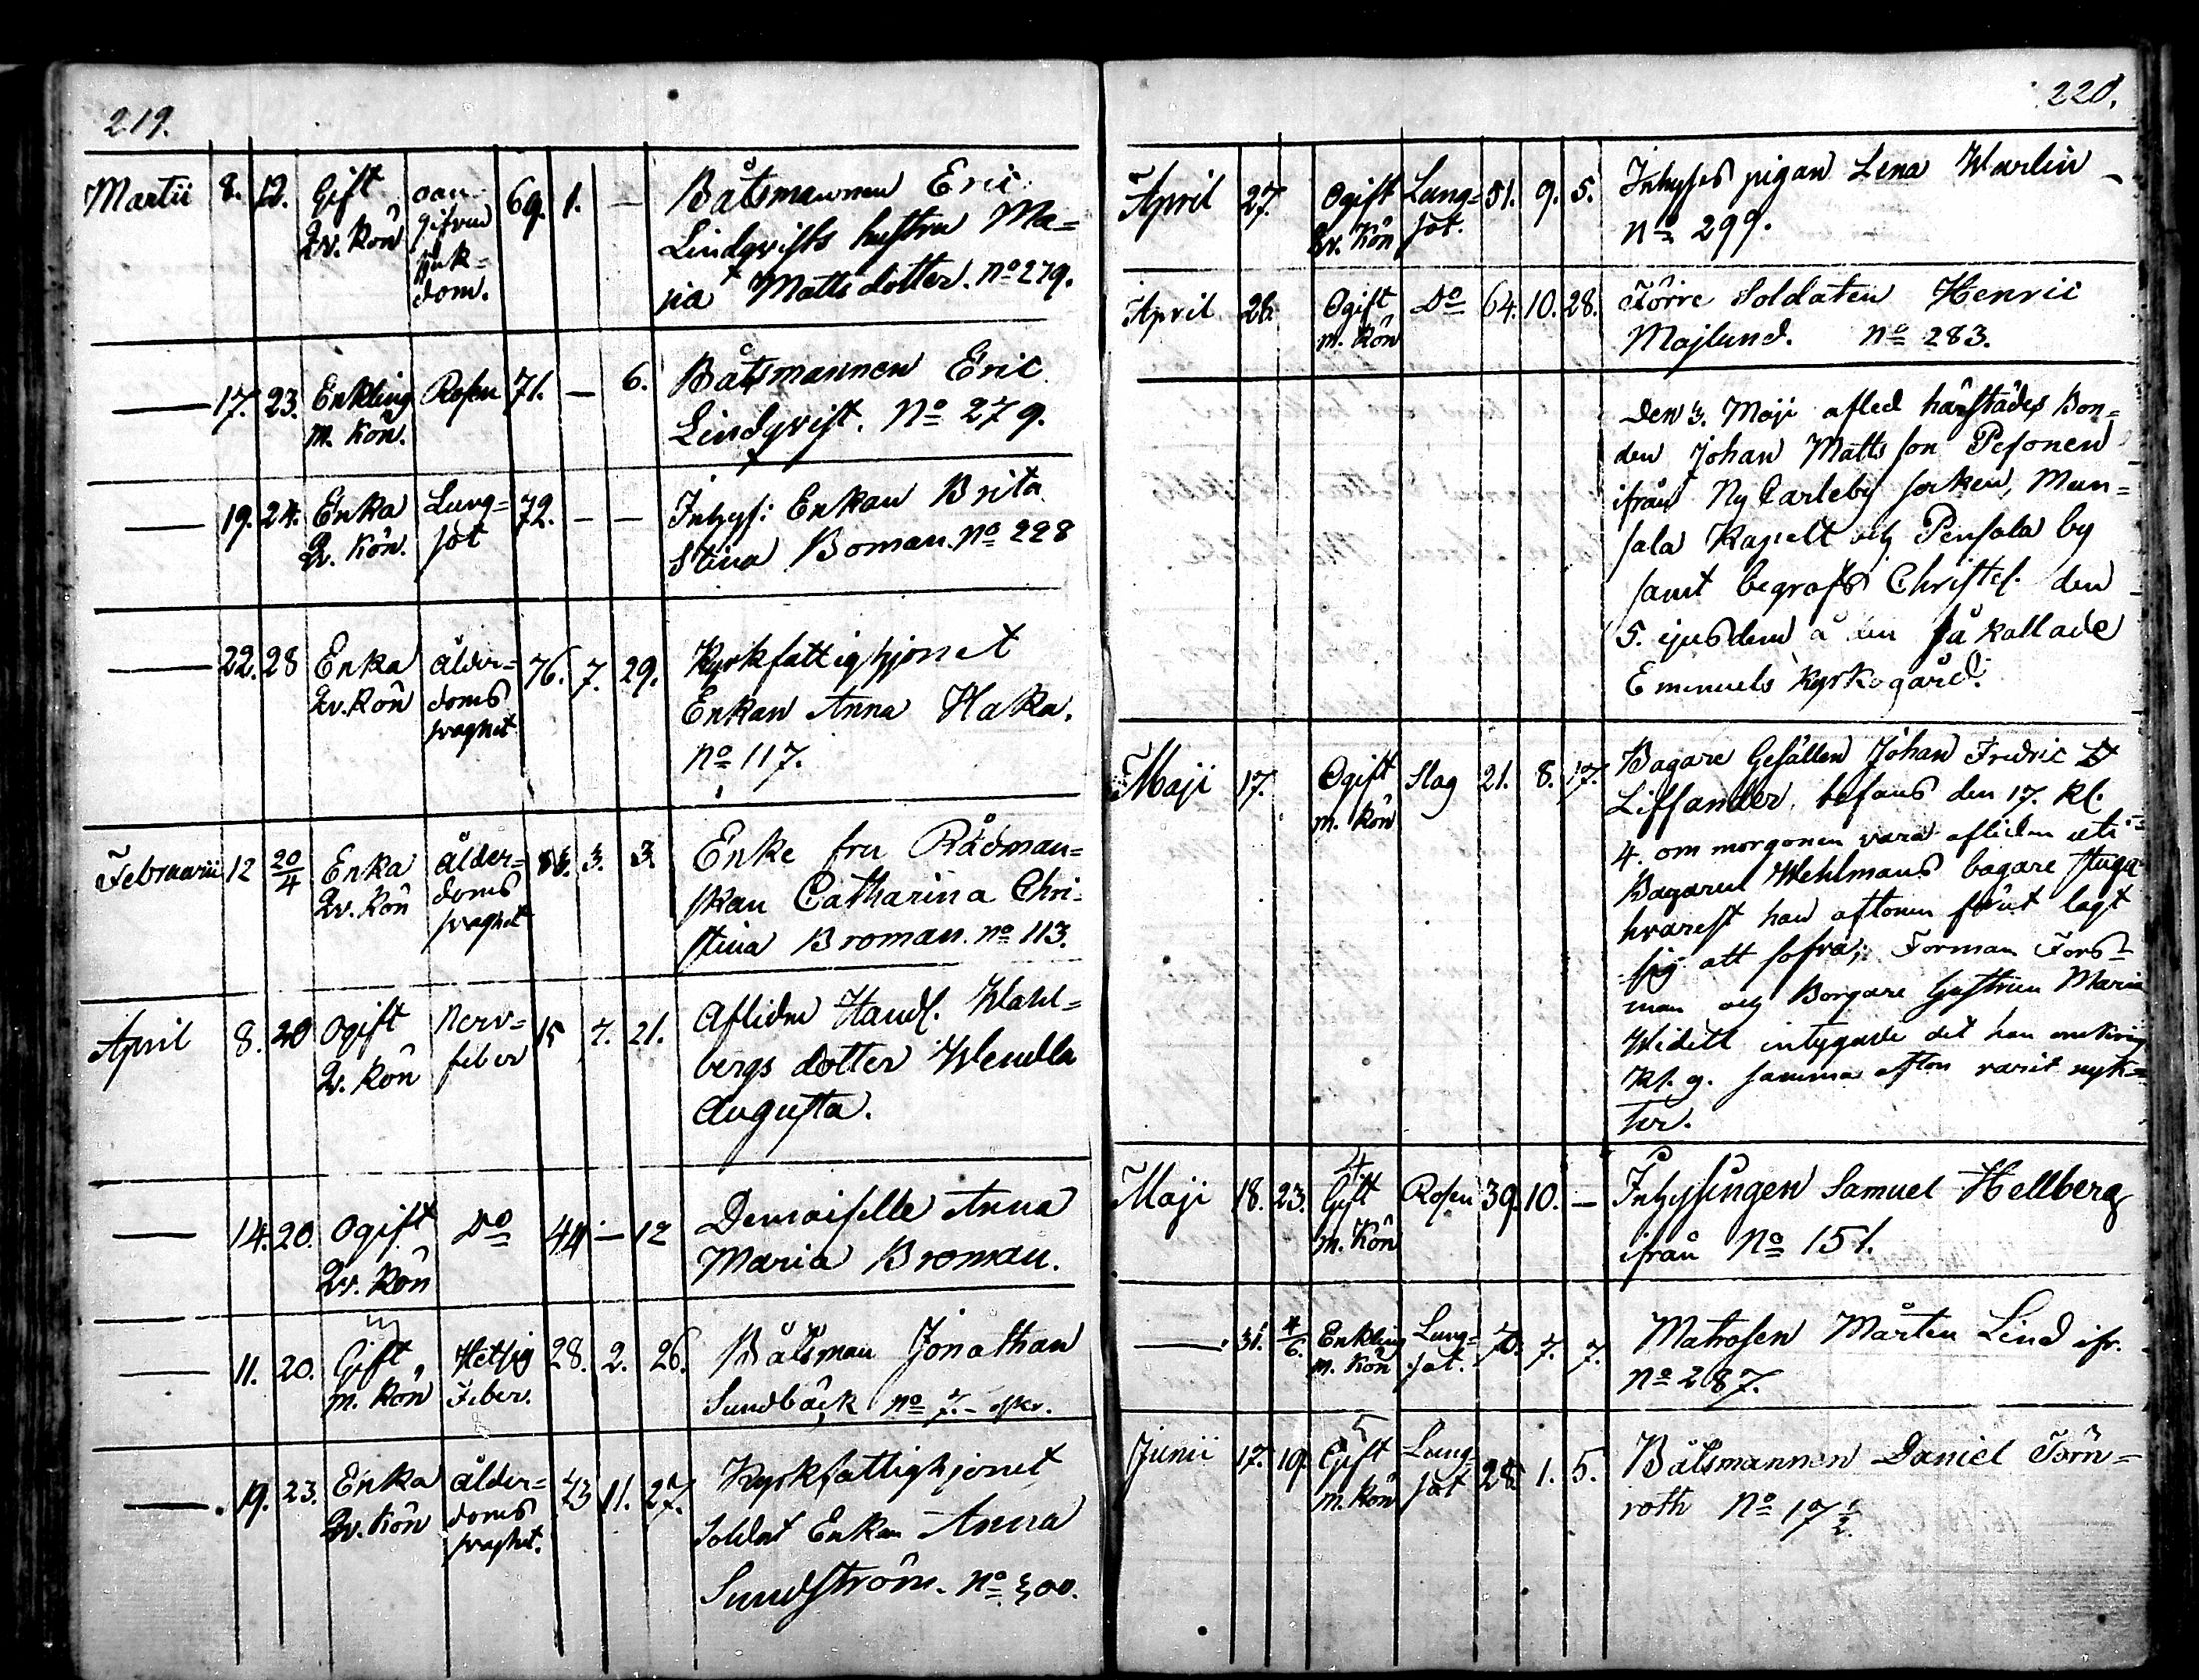 219.
Martii 8. 12. Gift oan- 69. 1. — Båtsmannen Eric
Qv. Kön gifven Lindqvists hustru Ma=
sjuk= ria Mattsdotter. No 279.
dom.
— 17. 23. Enkling Rosen 71. — 6. Båtsmannen Eric
m. Kön. Lindqvist. No 279.
— 19. 24. Enka Lung= 72. — — Inhys: Enkan Brita
Qv. Kön. sot Stina Boman. No 228
— 22. 28 Enka ålder= 76. 7. 29. Kyrkfattighjonet
Qv. Kön doms Enkan Anna Haka.
svaghet No 117.
Februarii 12 20/4 Enka ålder= 3. 3. Enke fru Rådman=
Qv. Kön doms skan Catharina Chri-
svaghet stina Broman. No 113.
April 8. 20 Ogift Nerv= 15 7. 21. Aflidne Handl. Wahl=
Qv. Kön feber bergs dotter Wendla
Augusta.
— 14. 20. Ogift Do 44 — 12 Demoiselle Anna
Qv. Kön Maria Broman.
— 11. 20. Gift Hetsig 28. 2. 26. Båtsman Jonathan
m. Kön Feber. Sundbäck No 7.
— 19. 23. Enka ålder= 73 11. 27. Kyrkfattighjonet
Qv. Kön doms Soldat Enkan Anna
svaghet. Sundström. No 300.
220.
April 27. Ogift Lung= 51. 9. 5. Inhyses pigan Lena Warlin
Qv. Kön sot. No 299.
April 28. Ogift Do 64. 10. 28. Förre Soldaten Henric
m. Kön Majlund. No 283.
Den 3. Maji afled härstädes Bon=
den Johan Mattsson Pesonen
ifrån Ny Carleby socken, Mun=
sala Kapell och Pensala by
samt begrofs Christel. den
5. ejusdem å den så kallade
Emanuels Kyrkogård.
Maji 17. Ogift Slag 21. 8. 17. Bagare Gesällen Johan Fredric
m. Kön Liffander, befans den 17. Kl.
4. om morgonen vara afliden uti
Bagaren Wehlmans bagare stuga
hvarest han aftonen förut lagt
sig att sofva; Forman Fors=
man och Borgare Hustrun Maria
Widell intygade det han omkring
Kl. 9. samma afton varit nyk=
ter.
Maji 18. 23. Gift Rosen 39. 10. — Inhysingen Samuel Hellberg
m. Kön ifrån No 151.
— 31. 4/6. Enkling Lung= 70. 7. 7. Matrosen Mårten Lind ifr.
m. Kön sot. No 287.
Junii 17. 19. Gift Lung= 28 1. 5. Båtsmannen Daniel Törn=
m. Kön sot roth No 17 1/2